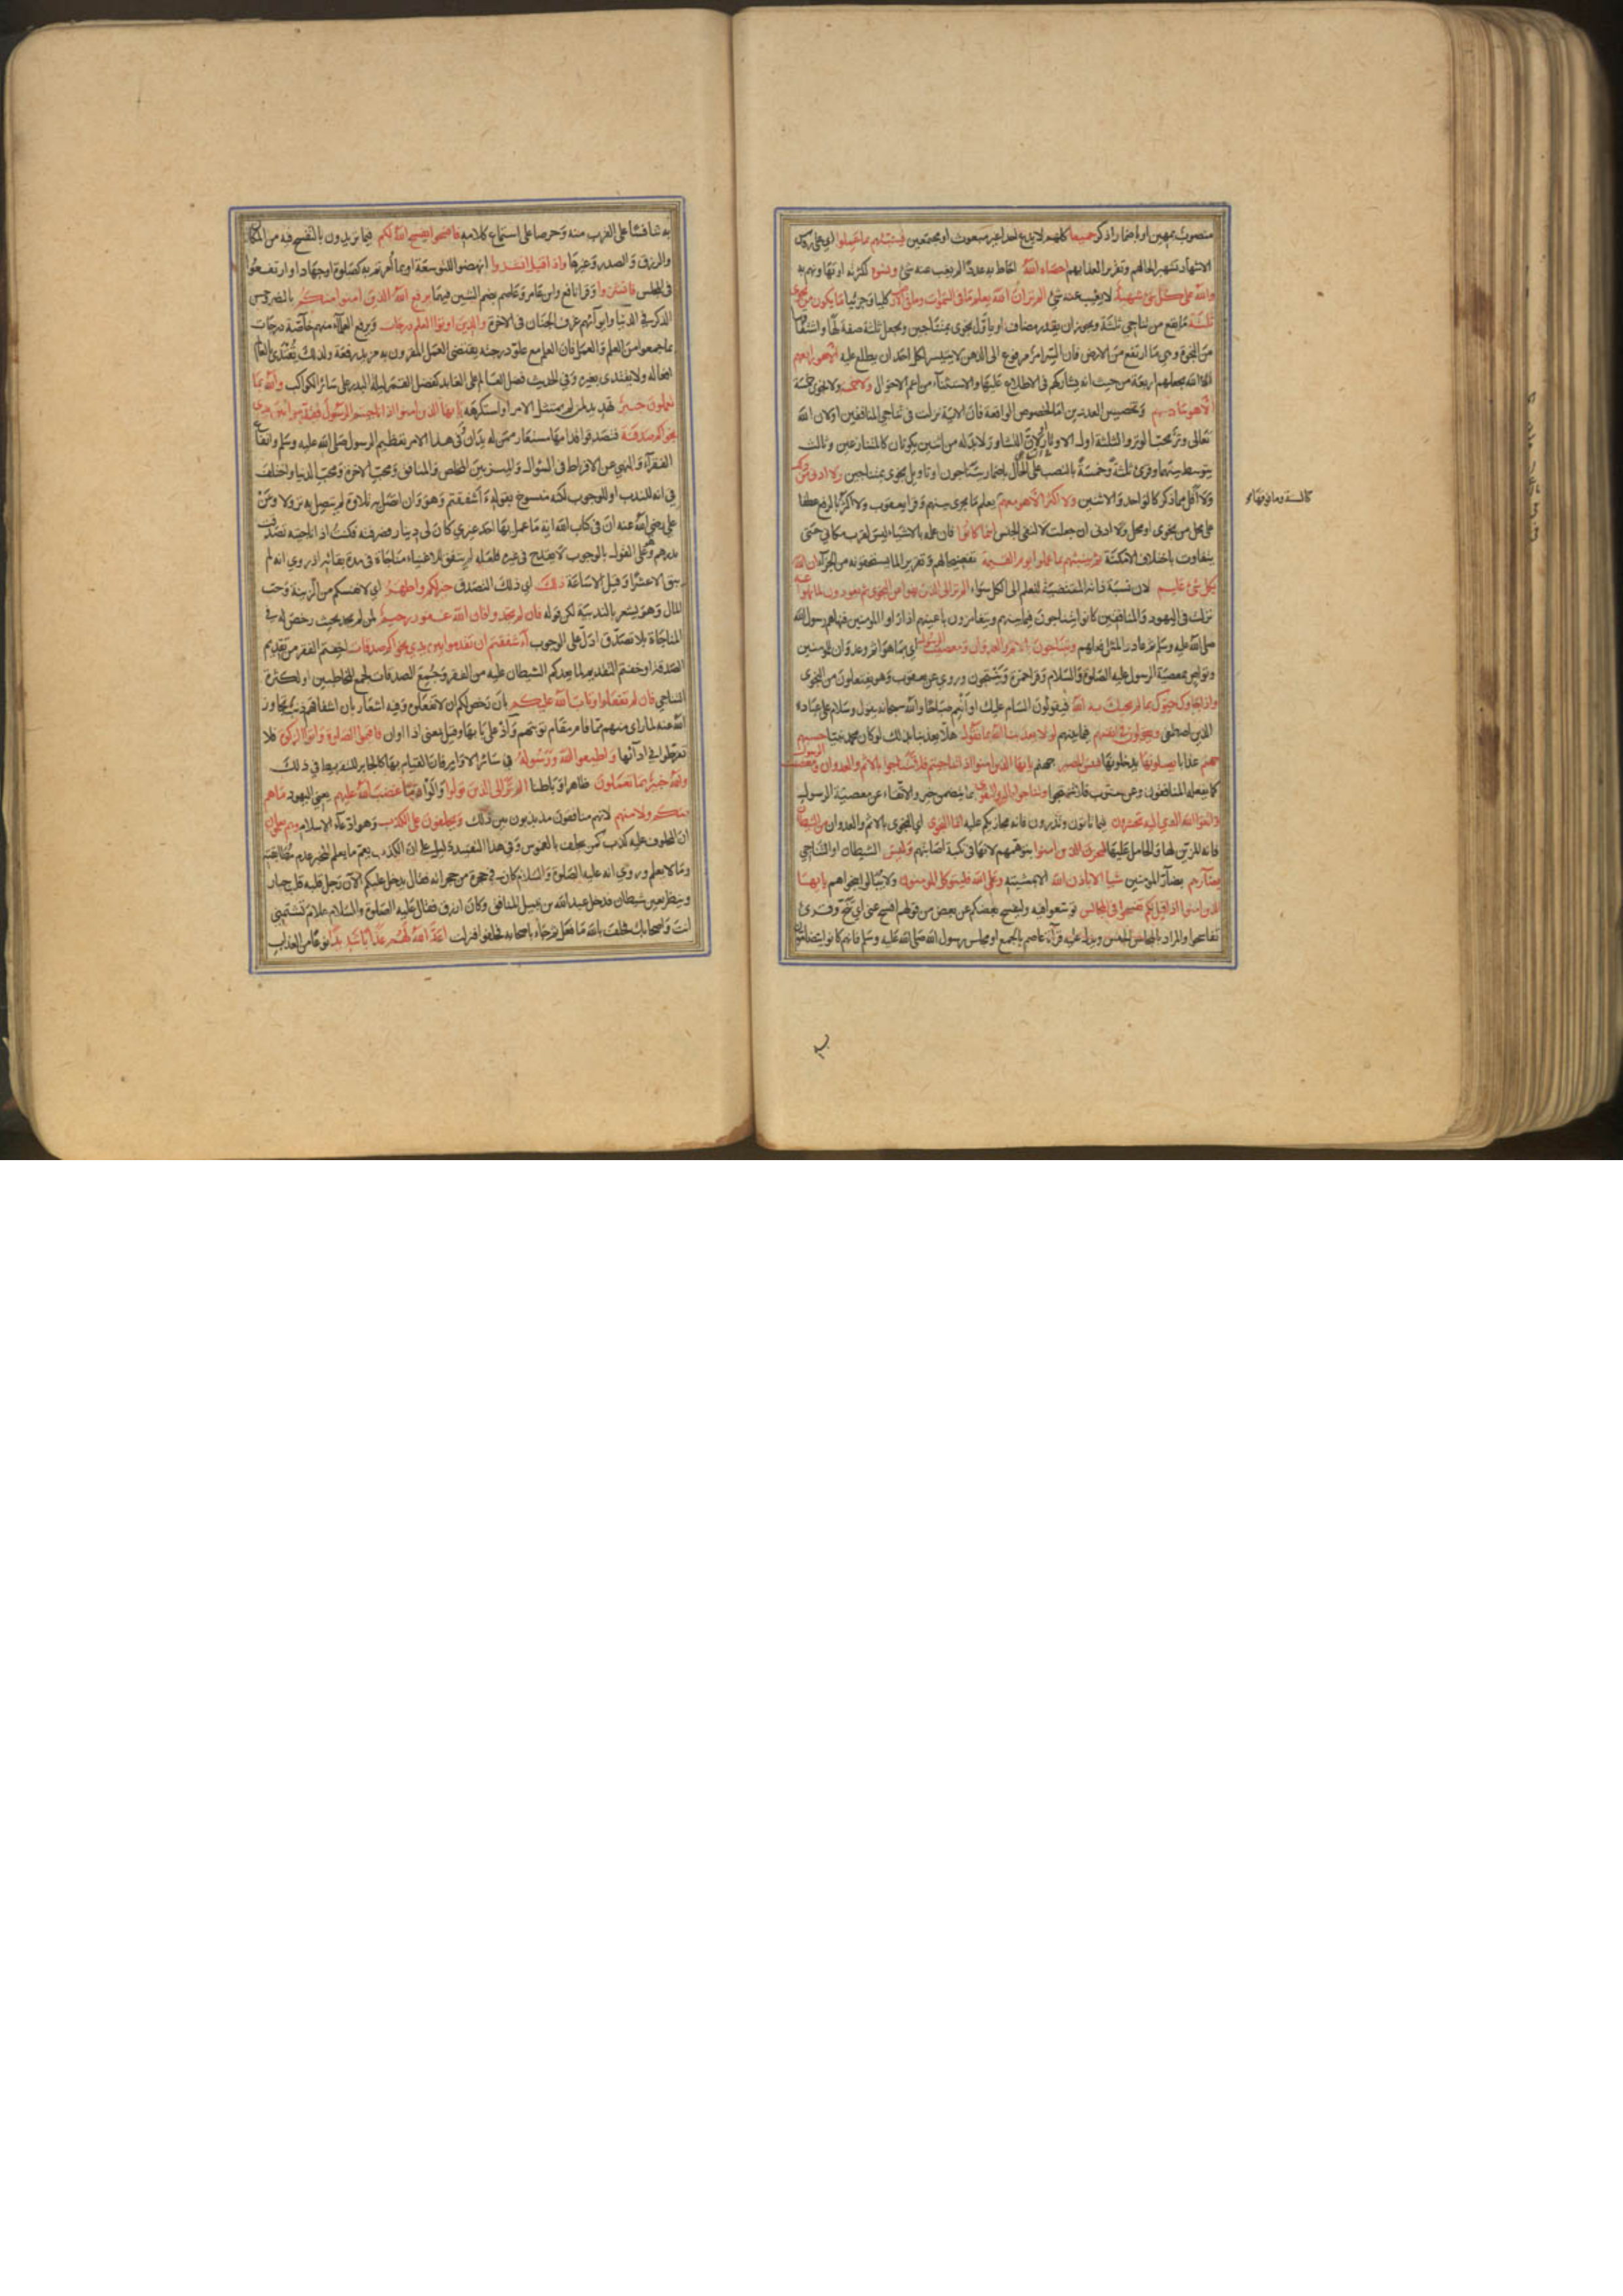 منصوب بمهين او باضمار اذكر جميعا كلهم لا يدع احدا غير مبعوث او مجتمعين فينبئهم بما عملوا اي على رؤس
الاشهاد تشهيرا لحالهم وتقريرا لعذابهم احصاه الله احاط به عددا لم يغب عنه شئ ونسوه لكثرته او تهاونهم به
والله على كل شئ شهيد لا يغيب عنه شئ الم تر ان الله يعلم ما في السموات وما في الارض كليا وجزئيا ما يكون من نجوى
ثلثة ما يقع من تناجي ثلثة ويجوز ان يقدر مضاف او ياول نجوى بمتناجين ويجعل ثلثة صفة لها واشتقاقها
من النجوة وهي ما ارتفع من الارض فان السر امر مرفوع الى الذهن لا يتيسر لكل احد ان يطلع عليه الا هو رابعهم
الا الله يجعلهم اربعة من حيث انه يشاركهم في الاطلاع عليها والاستثناء من اعم الاحوال ولا خمسة ولا نجوى خمسة
الا هو سادسهم وتخصيص العددين اما لخصوص الواقعة فان الآية نزلت في تناجي المنافقين او لان الله
تعالى وتر يحب الوتر والثلثة اول الاوتار او لان التشاور لا بد له من اثنين يكونان كالمتنازعين وثالث
يتوسط بينهما وقرئ ثلثة وخمسة بالنصب على الحال باضمار يتناجون او تاويل نجوى بمتناجين ولا ادنى من ذلك
ولا اقل مما ذكر كالواحد والاثنين ولا اكثر الا هو معهم يعلم ما يجري بينهم وقرا يعقوب ولا اكثر بالرفع عطفا
على محل من نجوى او محل ولا ادنى ان جعلت لا لنفي الجنس اينما كانوا فان علمه بالاشياء ليس لقرب مكاني حتى
يتفاوت باختلاف الامكنة ثم ينبئهم بما عملوا يوم القيمة تفضيحا لهم وتقريرا لما يستحقونه من الجزاء ان الله
بكل شئ عليم لان نسبة ذاته المقتضية للعلم الى الكل سواء الم تر الى الذين نهوا عن النجوى ثم يعودون لما نهوا عنه
نزلت في اليهود والمنافقين كانوا يتناجون فيما بينهم ويتغامزون باعينهم اذا راوا المؤمنين فنهاهم رسول الله
صلى الله عليه وسلم ثم عادوا لمثل فعلهم ويتناجون بالاثم والعدوان ومعصيت الرسول اي بما هو اثم وعدوان للمؤمنين
وتواص بمعصية الرسول عليه الصلوة والسلام وقرا حمزة وينتجون وروي عن يعقوب وهو يفتعلون من النجوى
واذا جاؤك حيوك بما لم يحيك به الله فيقولون السام عليك او انعم صباحا والله سبحانه يقول وسلام على عباده
الذين اصطفى ويقولون في انفسهم فيما بينهم لولا يعذبنا الله بما نقول هلا يعذبنا بذلك لو كان محمد نبيا حسبهم
جهنم عذابا يصلونها يدخلونها فبئس المصير جهنم يا ايها الذين امنوا اذا تناجيتم فلا تتناجوا بالاثم والعدوان ومعصيت الرسول
كما يفعله المنافقون وعن يعقوب فلا تنتجوا وتناجوا بالبر والتقوى بما يتضمن خير والاتقاء عن معصية الرسول
واتقوا الله الذي اليه تحشرون فيما تاتون وتذرون فانه مجازيكم عليه انما النجوى اي النجوى بالاثم والعدوان من الشيطان
فانه المزين لها والحامل عليها ليحزن الذين امنوا بتوهمهم لانها في نكبة اصابتهم وليس الشيطان او التناجي
بضارهم بضار المؤمنين شيا الا باذن الله الا بمشيته وعلى الله فليتوكل المؤمنون ولا يبالوا بنجواهم يا ايها
الذين امنوا اذا قيل لكم تفسحوا في المجالس توسعوا فيه وليفسح بعضكم عن بعض من قولهم افسح عني اي تنح وقرئ
تفاسحوا والمراد بالمجلس الجنس ويدل عليه قرآة عاصم بالجمع او مجلس رسول الله صلى الله عليه وسلم فانهم كانوا يتضامون
به تنافسا على القرب منه وحرصا على استماع كلامه فافسحوا يفسح الله لكم فيما تريدون بالتفسح فيه من المكان
والرزق والصدر وغيرها واذا قيل انشزوا انهضوا للتوسعة او بما امرتم به كصلوة او جهاد او ارتفعوا
في المجلس فانشزوا وقرا نافع وابن عامر وعاصم بضم الشين فيهما يرفع الله الذين امنوا منكم بالنصر وحسن
الذكر في الدنيا وايوائهم غرف الجنان في الاخرة والذين اوتوا العلم درجات ويرفع العلماء منهم خاصة درجات
بما جمعوا من العلم والعمل فان العلم مع علو درجته يقتضي العمل المقرون به مزيد رفعة ولذلك يقتدى بالعالم
افعاله ولا يقتدى بغيره وفي الحديث فضل العالم على العابد كفضل القمر ليلة البدر على سائر الكواكب والله بما
تعملون خبير تهديد لمن لم يمتثل الامر او استكرهه يا ايها الذين امنوا اذا ناجيتم الرسول فقدموا بين يدي
نجواكم صدقة فتصدقوا قدامها مستعار ممن له يدان وفي هذا الامر تعظيم الرسول صلى الله عليه وسلم وانفاع
الفقراء والنهي عن الافراط في السؤال والميز بين المخلص والمنافق ومحب الاخرة ومحب الدنيا واختلف
في انه للندب او للوجوب لكنه منسوخ بقوله ءاشفقتم وهو وان اتصل به تلاوة لم يتصل به نزولا وعن
علي رضي الله عنه ان في كتاب الله اية ما عمل بها احد غيري كان لي دينار فصرفته فكنت اذا ناجيته تصدقت
بدرهم وعلى القول بالوجوب لا يقدح في غيره فلعله لم يتفق للاغنياء مناجاة في مدة بقائه اذ روي انه لم
يبق الا عشرا وقيل الا ساعة ذلك اي ذلك التصدق خير لكم واطهر اي لانفسكم من الريبة وحب
المال وهو يشعر بالندبية لكن قوله فان لم تجدوا فان الله غفور رحيم لمن لم يجد بحيث رخص له في
المناجاة بلا تصدق ادل على الوجوب ءاشفقتم ان تقدموا بين يدي نجواكم صدقات اخفتم الفقر من تقديم
الصدقة او خفتم التقديم لما يعدكم الشيطان عليه من الفقر وجمع الصدقات لجمع المخاطبين او لكثرة
التناجي فان لم تفعلوا وتاب الله عليكم بان رخص لكم ان لا تفعلوه وفيه اشعار بان اشفاقهم ذنب تجاوز
الله عنه لما راى منهم مما قام مقام توبتهم واذ على بابها وقيل بمعنى اذا او ان فاقيموا الصلوة واتوا الزكوة فلا
تفرطوا في ادائها واطيعوا الله ورسوله في سائر الاوامر فان القيام بها كالجابر للتفريط في ذلك
والله خبير بما تعملون ظاهرا وباطنا الم تر الى الذين تولوا والوا قوما غضب الله عليهم يعني اليهود ما هم
منكم ولا منهم لانهم منافقون مذبذبون بين ذلك ويحلفون على الكذب وهو ادعاء الاسلام وهم يعلمون
ان المحلوف عليه كذب كمن يحلف بالغموس وفي هذا التقييد دليل على ان الكذب يعم ما يعلم المخبر عدم مطابقته
وما لا يعلم وروي انه عليه الصلوة والسلام كان في حجرة من حجراته فقال يدخل عليكم الآن رجل قلبه قلب جبار
وينظر بعين شيطان فدخل عبد الله بن نبتل المنافق وكان ازرق فقال عليه الصلوة والسلام علام تشتمني
انت واصحابك فحلف بالله ما فعل ثم جاء باصحابه فحلفوا فنزلت اعد الله لهم عذابا شديدا نوعا من العذاب